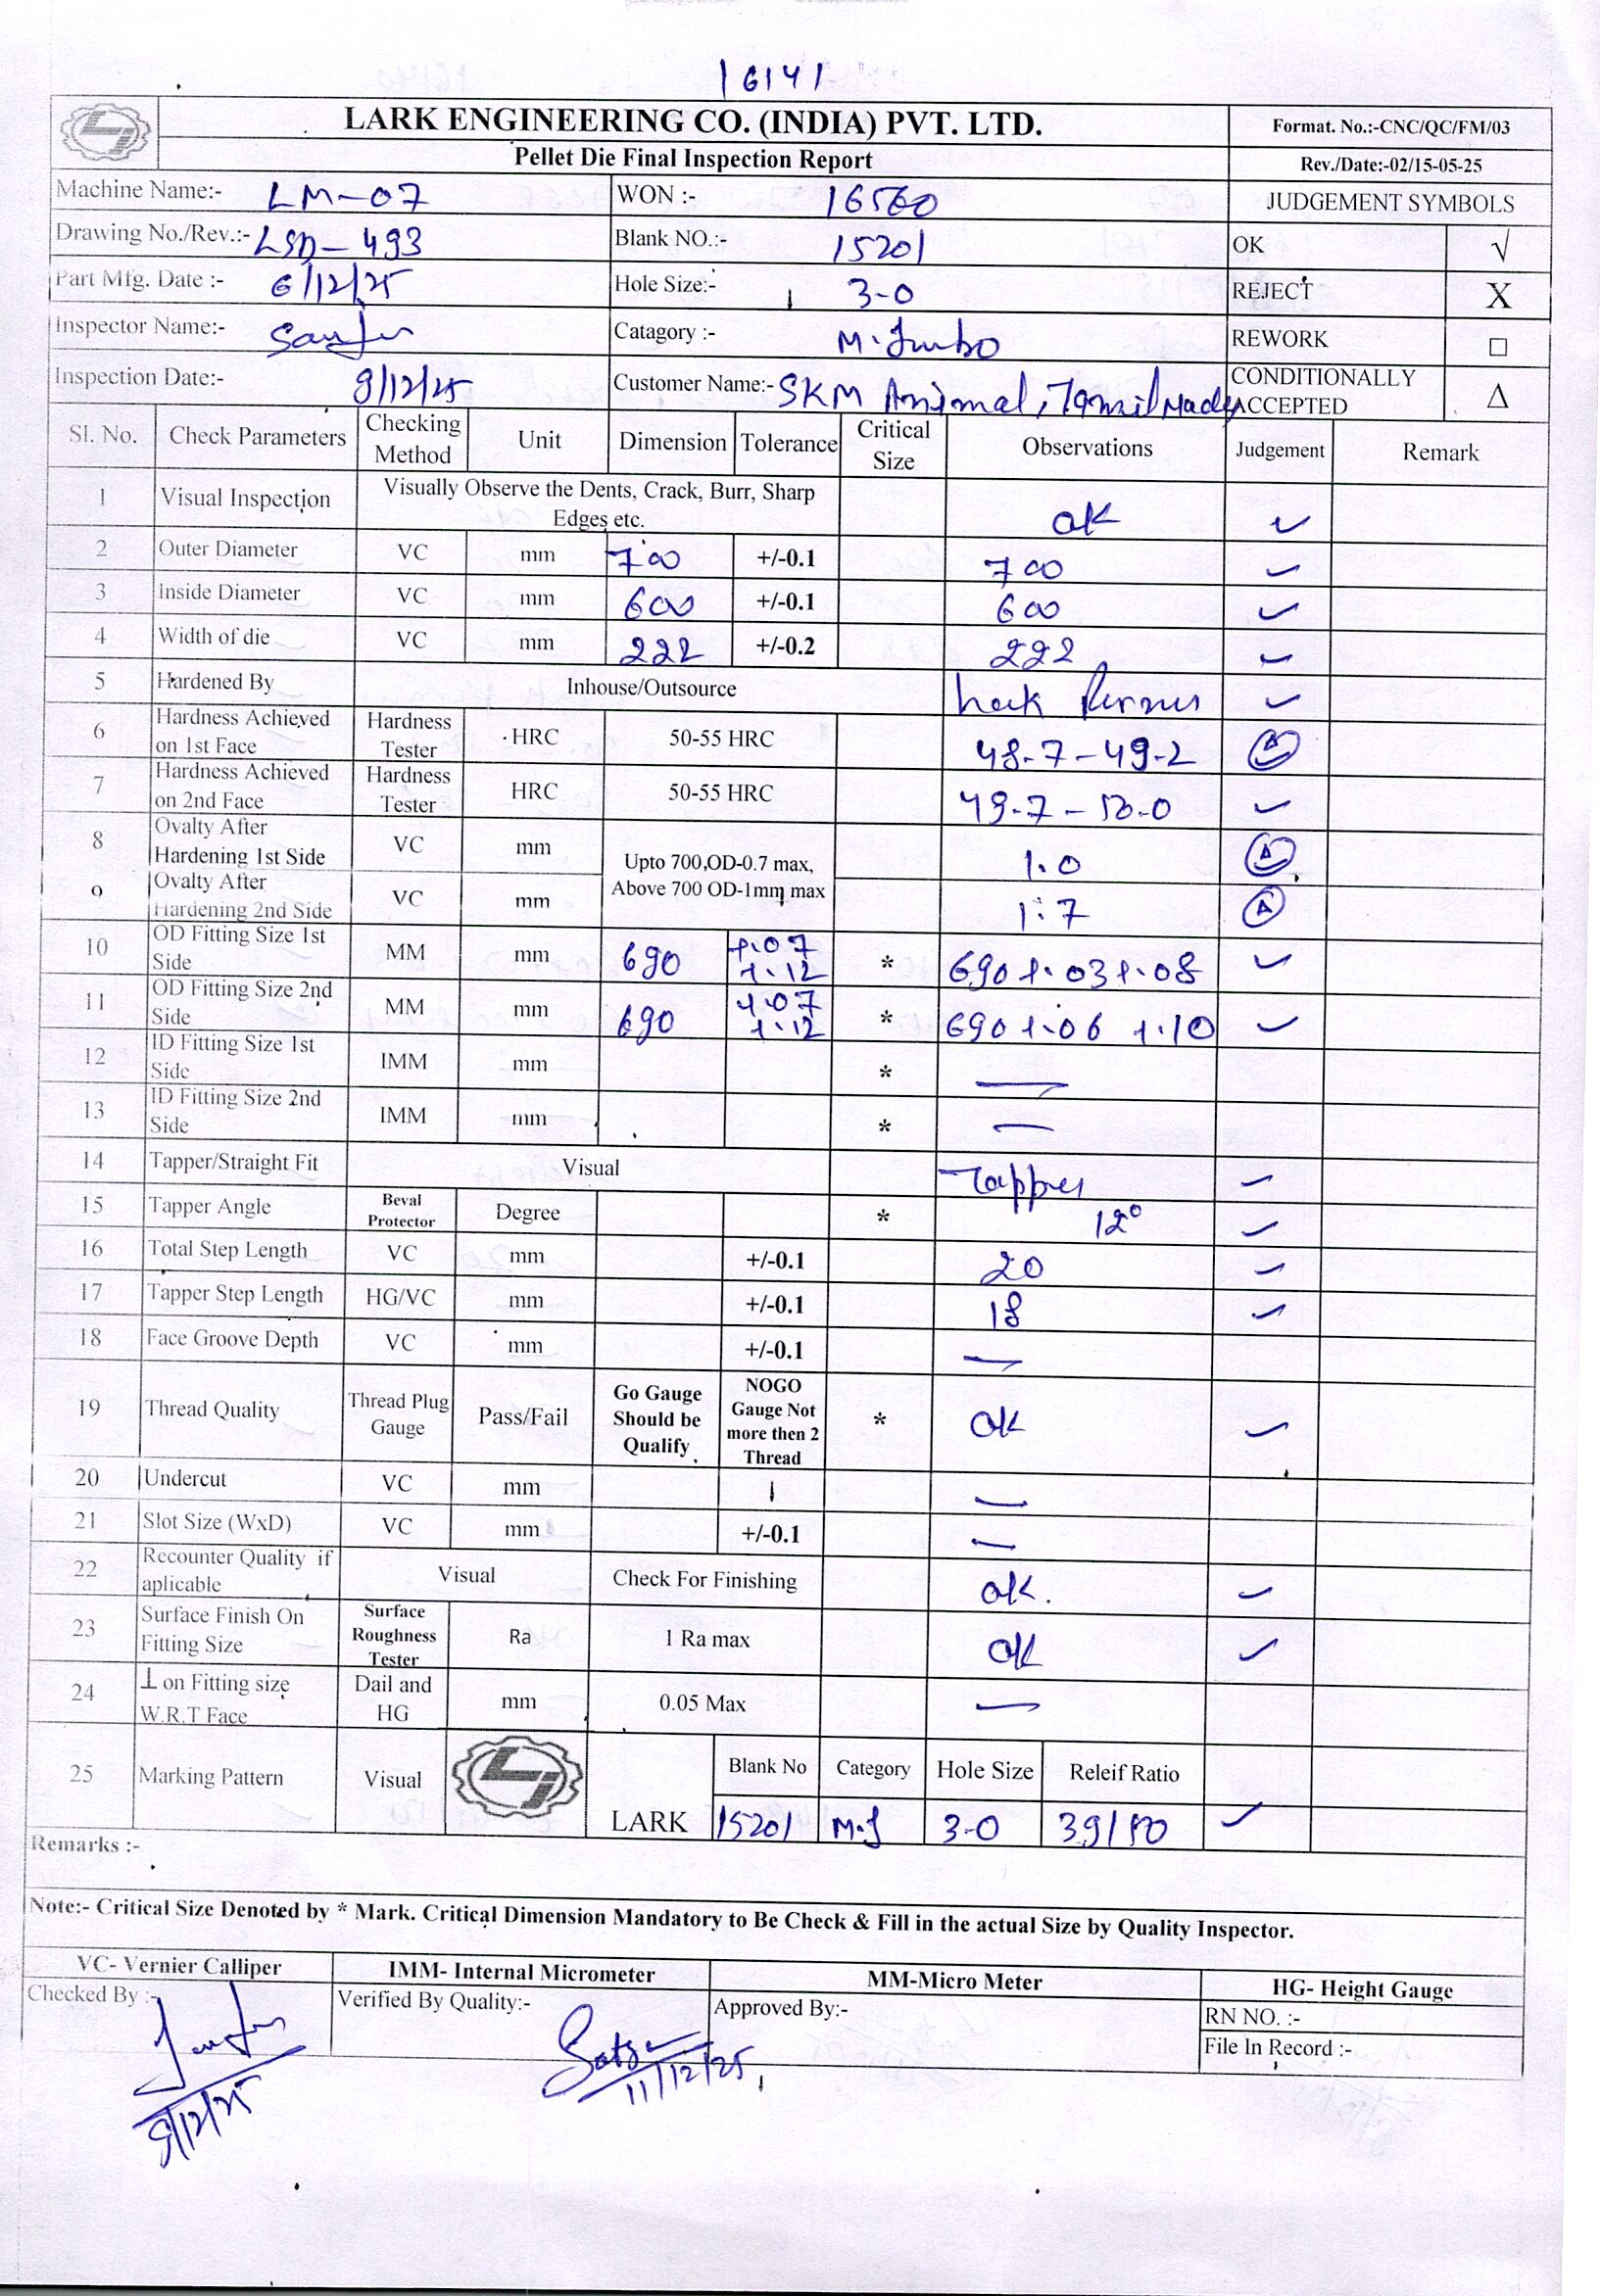 16141
LARK ENGINEERING CO. (INDIA) PVT. LTD.
Format. No.:-CNC/QC/FM/03
Pellet Die Final Inspection Report
Rev./Date:-02/15-05-25
Machine Name:- LM-07 WON :- 16560 JUDGEMENT SYMBOLS
Drawing No./Rev.:- LSD-493 Blank NO.:- 15201 OK √
Part Mfg. Date :- 6/12/25 Hole Size:- 3-0 REJECT X
Inspector Name:- Catagory :- M.Jumbo REWORK □
Inspection Date:- 9/12/25 Customer Name:- SKM Animal, Tamil Nadu CONDITIONALLY ACCEPTED Δ
Sl. No. Check Parameters Checking Method Unit Dimension Tolerance Critical Size Observations Judgement Remark
1 Visual Inspection Visually Observe the Dents, Crack, Burr, Sharp Edges etc. ok ✓
2 Outer Diameter VC mm 700 +/-0.1 700 ✓
3 Inside Diameter VC mm 600 +/-0.1 600 ✓
4 Width of die VC mm 222 +/-0.2 222 ✓
5 Hardened By Inhouse/Outsource ✓
6 Hardness Achieved on 1st Face Hardness Tester HRC 50-55 HRC 48.7-49.2 Δ
7 Hardness Achieved on 2nd Face Hardness Tester HRC 50-55 HRC 49.7-50.0 ✓
8 Ovalty After Hardening 1st Side VC mm Upto 700,OD-0.7 max, Above 700 OD-1mm max 1.0 Δ
9 Ovalty After Hardening 2nd Side VC mm 1.7 Δ
10 OD Fitting Size 1st Side MM mm 690 +.07 +.12 * 690 +.03 +.08 ✓
11 OD Fitting Size 2nd Side MM mm 690 +.07 +.12 * 690 +.06 +.10 ✓
12 ID Fitting Size 1st Side IMM mm * —
13 ID Fitting Size 2nd Side IMM mm * —
14 Tapper/Straight Fit Visual Tapper ✓
15 Tapper Angle Beval Protector Degree * 12° ✓
16 Total Step Length VC mm +/-0.1 20 ✓
17 Tapper Step Length HG/VC mm +/-0.1 18 ✓
18 Face Groove Depth VC mm +/-0.1 —
19 Thread Quality Thread Plug Gauge Pass/Fail Go Gauge Should be Qualify NOGO Gauge Not more then 2 Thread * ok ✓
20 Undercut VC mm —
21 Slot Size (WxD) VC mm +/-0.1 —
22 Recounter Quality if aplicable Visual Check For Finishing ok. ✓
23 Surface Finish On Fitting Size Surface Roughness Tester Ra 1 Ra max ok ✓
24 ⊥ on Fitting size W.R.T Face Dail and HG mm 0.05 Max —
25 Marking Pattern Visual LARK Blank No Category Hole Size Releif Ratio
15201 M.J 3-0 39/50 ✓
Remarks :-
Note:- Critical Size Denoted by * Mark. Critical Dimension Mandatory to Be Check & Fill in the actual Size by Quality Inspector.
VC- Vernier Calliper IMM- Internal Micrometer MM-Micro Meter HG- Height Gauge
Checked By :- Verified By Quality:- Approved By:- RN NO. :-
File In Record :-
11/12/25
9/12/25